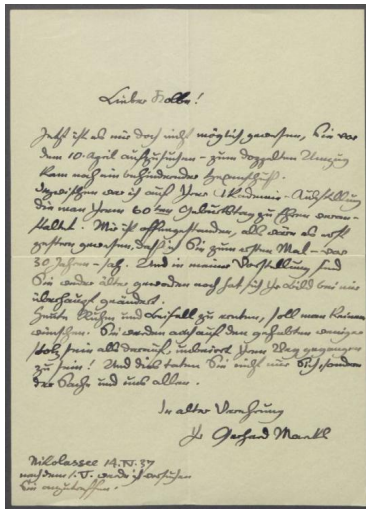 Lieber Kolbe!
Jetzt ist es mir doch nicht möglich gewesen, Sie vor
dem 10. April aufzusuchen – zum doppelten Umzug
kam noch ein behindernder Hexenschuß.
Inzwischen war ich auf Ihrer Akademie-Ausstellung
die man Ihrem 60ten Geburtstag zu Ehren veran-
staltet. Mir ist offengestanden, als wäre es erst
gestern gewesen, daß ich Sie zum ersten Mal – vor
30 Jahren – sah. Und in meiner Vorstellung sind
Sie weder älter geworden noch hat sich Ihr Bild bei mir
überhaupt geändert.
Heute Ruhm und Beifall zu ernten, soll man keinem
wünschen. Sie werden auch auf den gehabten weniger
stolz sein als darauf, unbeirrt Ihren Weg gegangen
zu sein! Und dies taten Sie nicht nur sich, sondern
der Sache und uns allen.
In alter Verehrung
Ihr Gerhard Marcks
Nikolassee 14.IV.37
nach dem 1.V. werde ich versuchen
Sie anzutreffen.